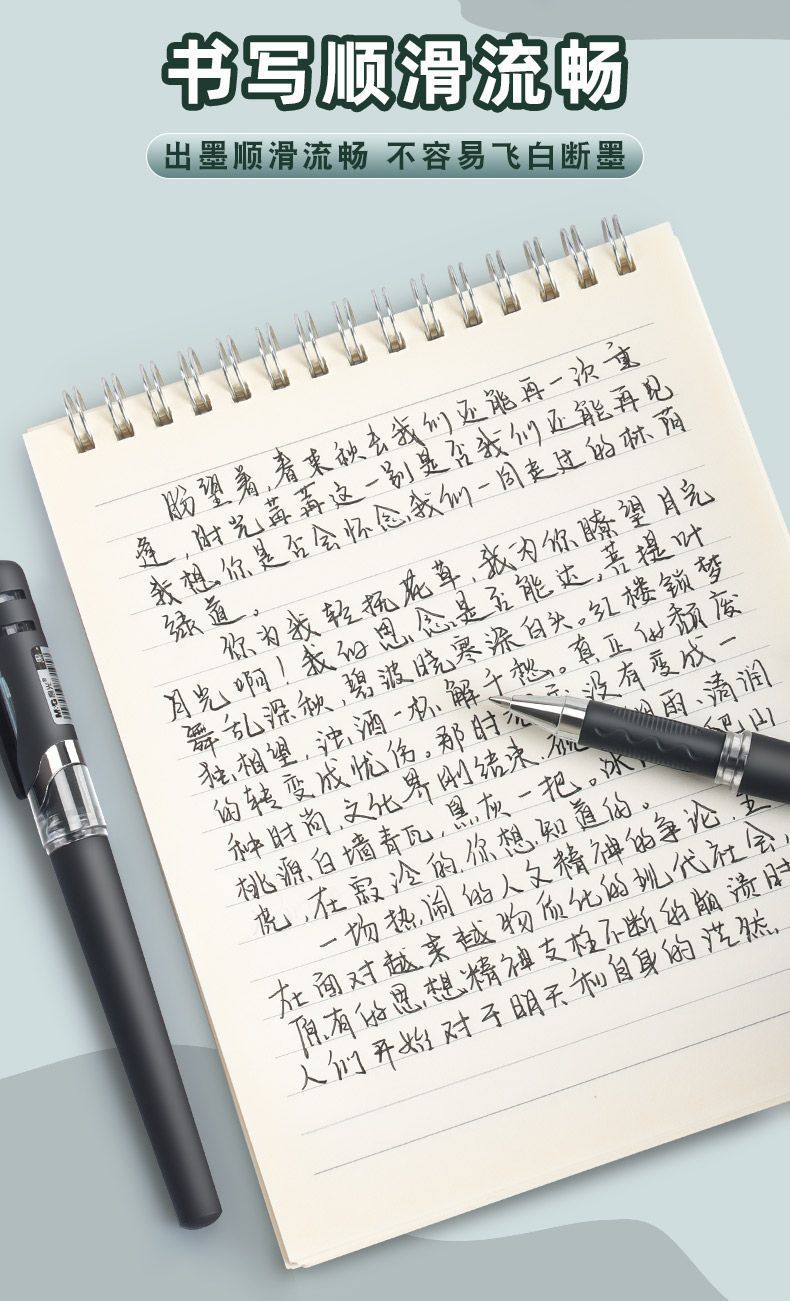 书写顺滑流畅
出墨顺滑流畅 不容易飞白断墨
盼望着,春来秋去我们还能再一次重
逢,时光荏苒这一别是否我们还能再见
我想,你是否会怀念,我们一同走过的林荫
绿道。
你为我轻抚花草,我为你瞭望月光
月光啊!我的思念是否能达,菩提叶
舞乱深秋,碧波晓寒深白头。红楼锁梦
独相望,浊酒一杯解千愁。真正的颓废
的转变成忧伤。那时 没有变成一
种时尚,文化界刚结束 清润
桃源,白墙青瓦,黑灰一把。 山
亮,在寂冷的,你想知道的。
一场热闹的人文精神的争论,
在面对越来越物质化的现代社会,
原有的思想精神支柱不断的崩溃时
人们开始对于明天和自身的茫然,
M&G 晨光